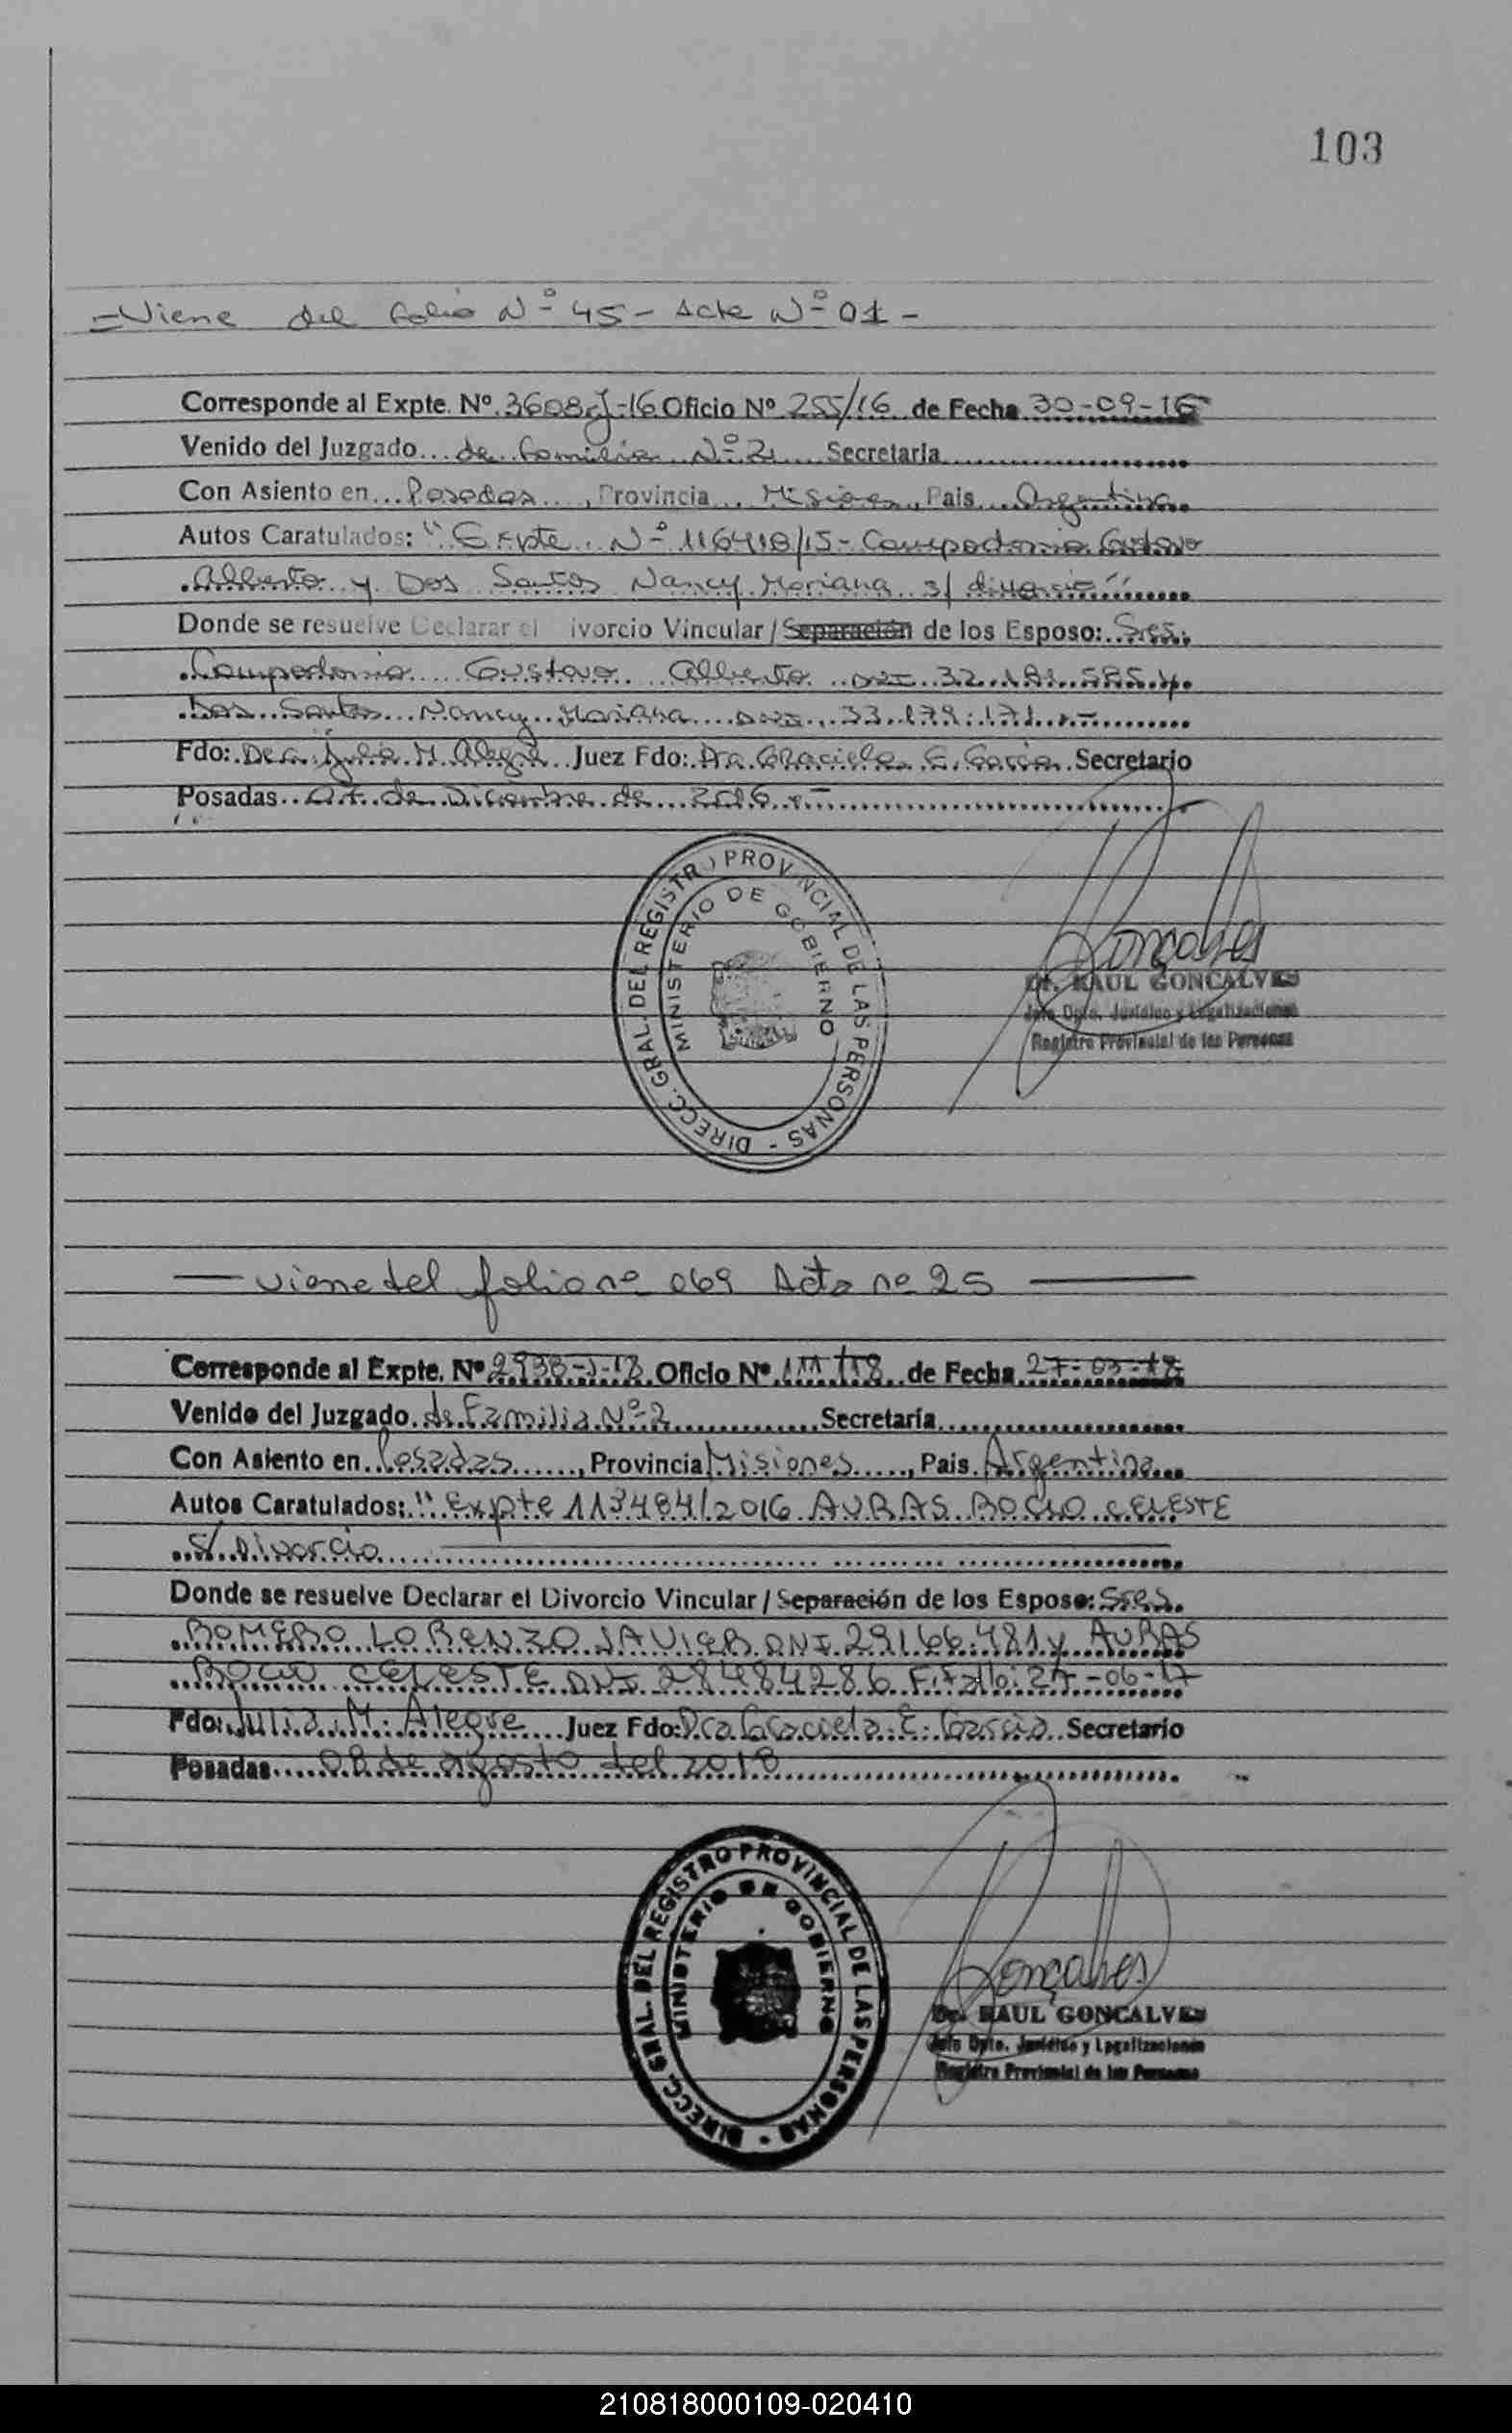 103
= Viene del folio Nº 45 - Acta Nº 01 -
Corresponde al Expte. Nº 3608-J-16 Oficio Nº 255/16 de Fecha 30-09-16
Venido del Juzgado de Familia Nº 2 Secretaría
Con Asiento en Posadas, Provincia Misiones, País Argentina
Autos Caratulados: "Expte. Nº 116418/15 - Campodonio Gustavo
Alberto y Dos Santos Nancy Mariana s/ divorcio"
Donde se resuelve Declarar el ivorcio Vincular / Separación de los Esposo: Sres.
Campodonio Gustavo Alberto DNI 32.181.585 y
Dos Santos Nancy Mariana DNI 33.179.171.-
Fdo: Dra. Julia M. Alegre Juez Fdo: Dra. Graciela E. Garcia Secretario
Posadas 07 de Diciembre de 2016.-
DIRECC. GRAL. DEL REGISTRO PROVINCIAL DE LAS PERSONAS -
MINISTERIO DE GOBIERNO
Goncalves
Dr. RAUL GONCALVES
Jefe Dpto. Jurídico y Legalizaciones
Registro Provincial de las Personas
— viene del folio nº 069 Acta nº 25 —
Corresponde al Expte. Nº 2938-J-18 Oficio Nº 111/18 de Fecha 27-03-18
Venido del Juzgado de Familia Nº 2 Secretaría
Con Asiento en Posadas, Provincia Misiones, País Argentina
Autos Caratulados: "Expte 113484/2016 AURAS ROCIO CELESTE
S/ Divorcio
Donde se resuelve Declarar el Divorcio Vincular / Separación de los Esposo: Sres.
ROMERO LORENZO JAVIER DNI 29.166.481 y AURAS
ROCIO CELESTE DNI 28484286 F. Fallo: 27-06-17
Fdo: Julia M. Alegre Juez Fdo: Dra Graciela E. Garcia Secretario
Posadas 08 de agosto del 2018
DIRECC. GRAL. DEL REGISTRO PROVINCIAL DE LAS PERSONAS -
MINISTERIO DE GOBIERNO
Goncalves
Dr. RAUL GONCALVES
Jefe Dpto. Jurídico y Legalizaciones
Registro Provincial de las Personas
210818000109-020410